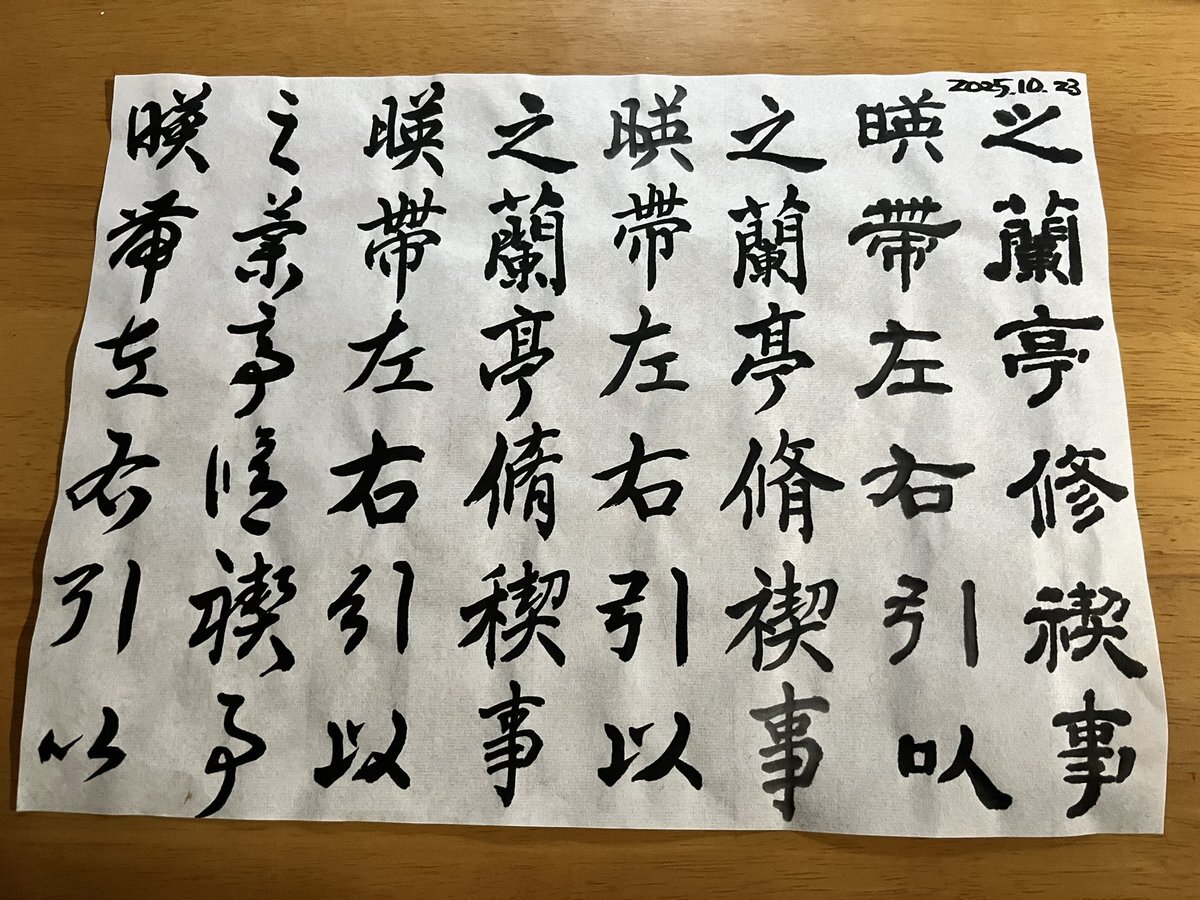 2025.10.23
之蘭亭修禊事
暎帶左右引以
之蘭亭脩禊事
暎帶左右引以
之蘭亭脩稧事
暎帶左右引以
之蘭亭脩禊事
暎帶左右引以